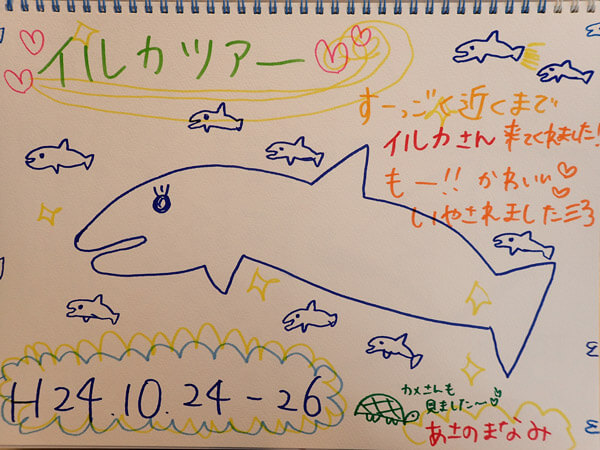 イルカツアー
すーっごく近くまで
イルカさん来てくれました!
もー!!かわいい♡♡
いやされました
H24.10.24-26
カメさんも
見ました〜♡
あさのまなみ